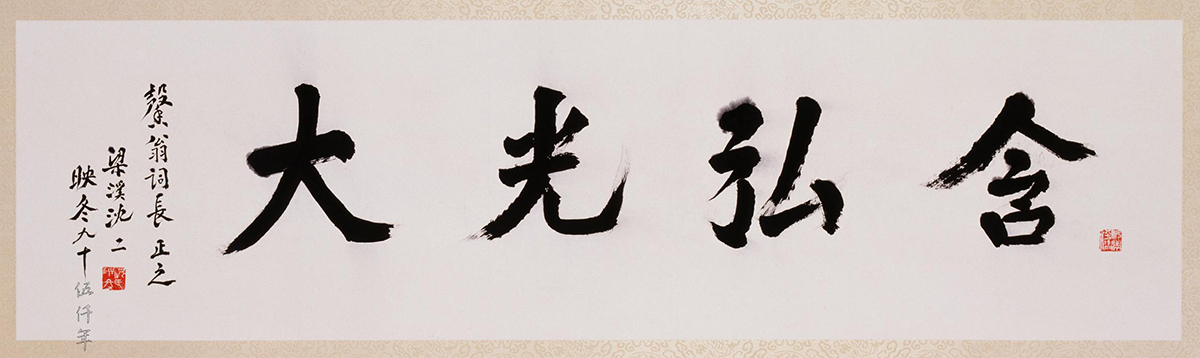 含弘光大
馨翁詞長正之
梁溪沈二
映冬九十
伍仟年